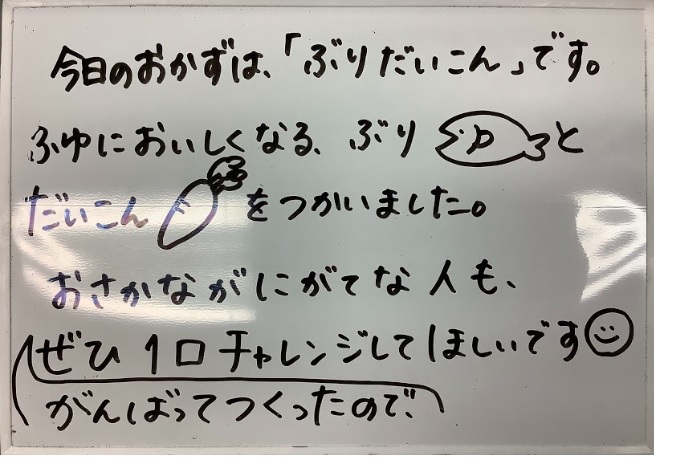 今日のおかずは、「ぶりだいこん」です。
ふゆにおいしくなる、ぶりと
だいこんをつかいました。
おさかながにがてな人も、
ぜひ1口チャレンジしてほしいです
がんばってつくったので、